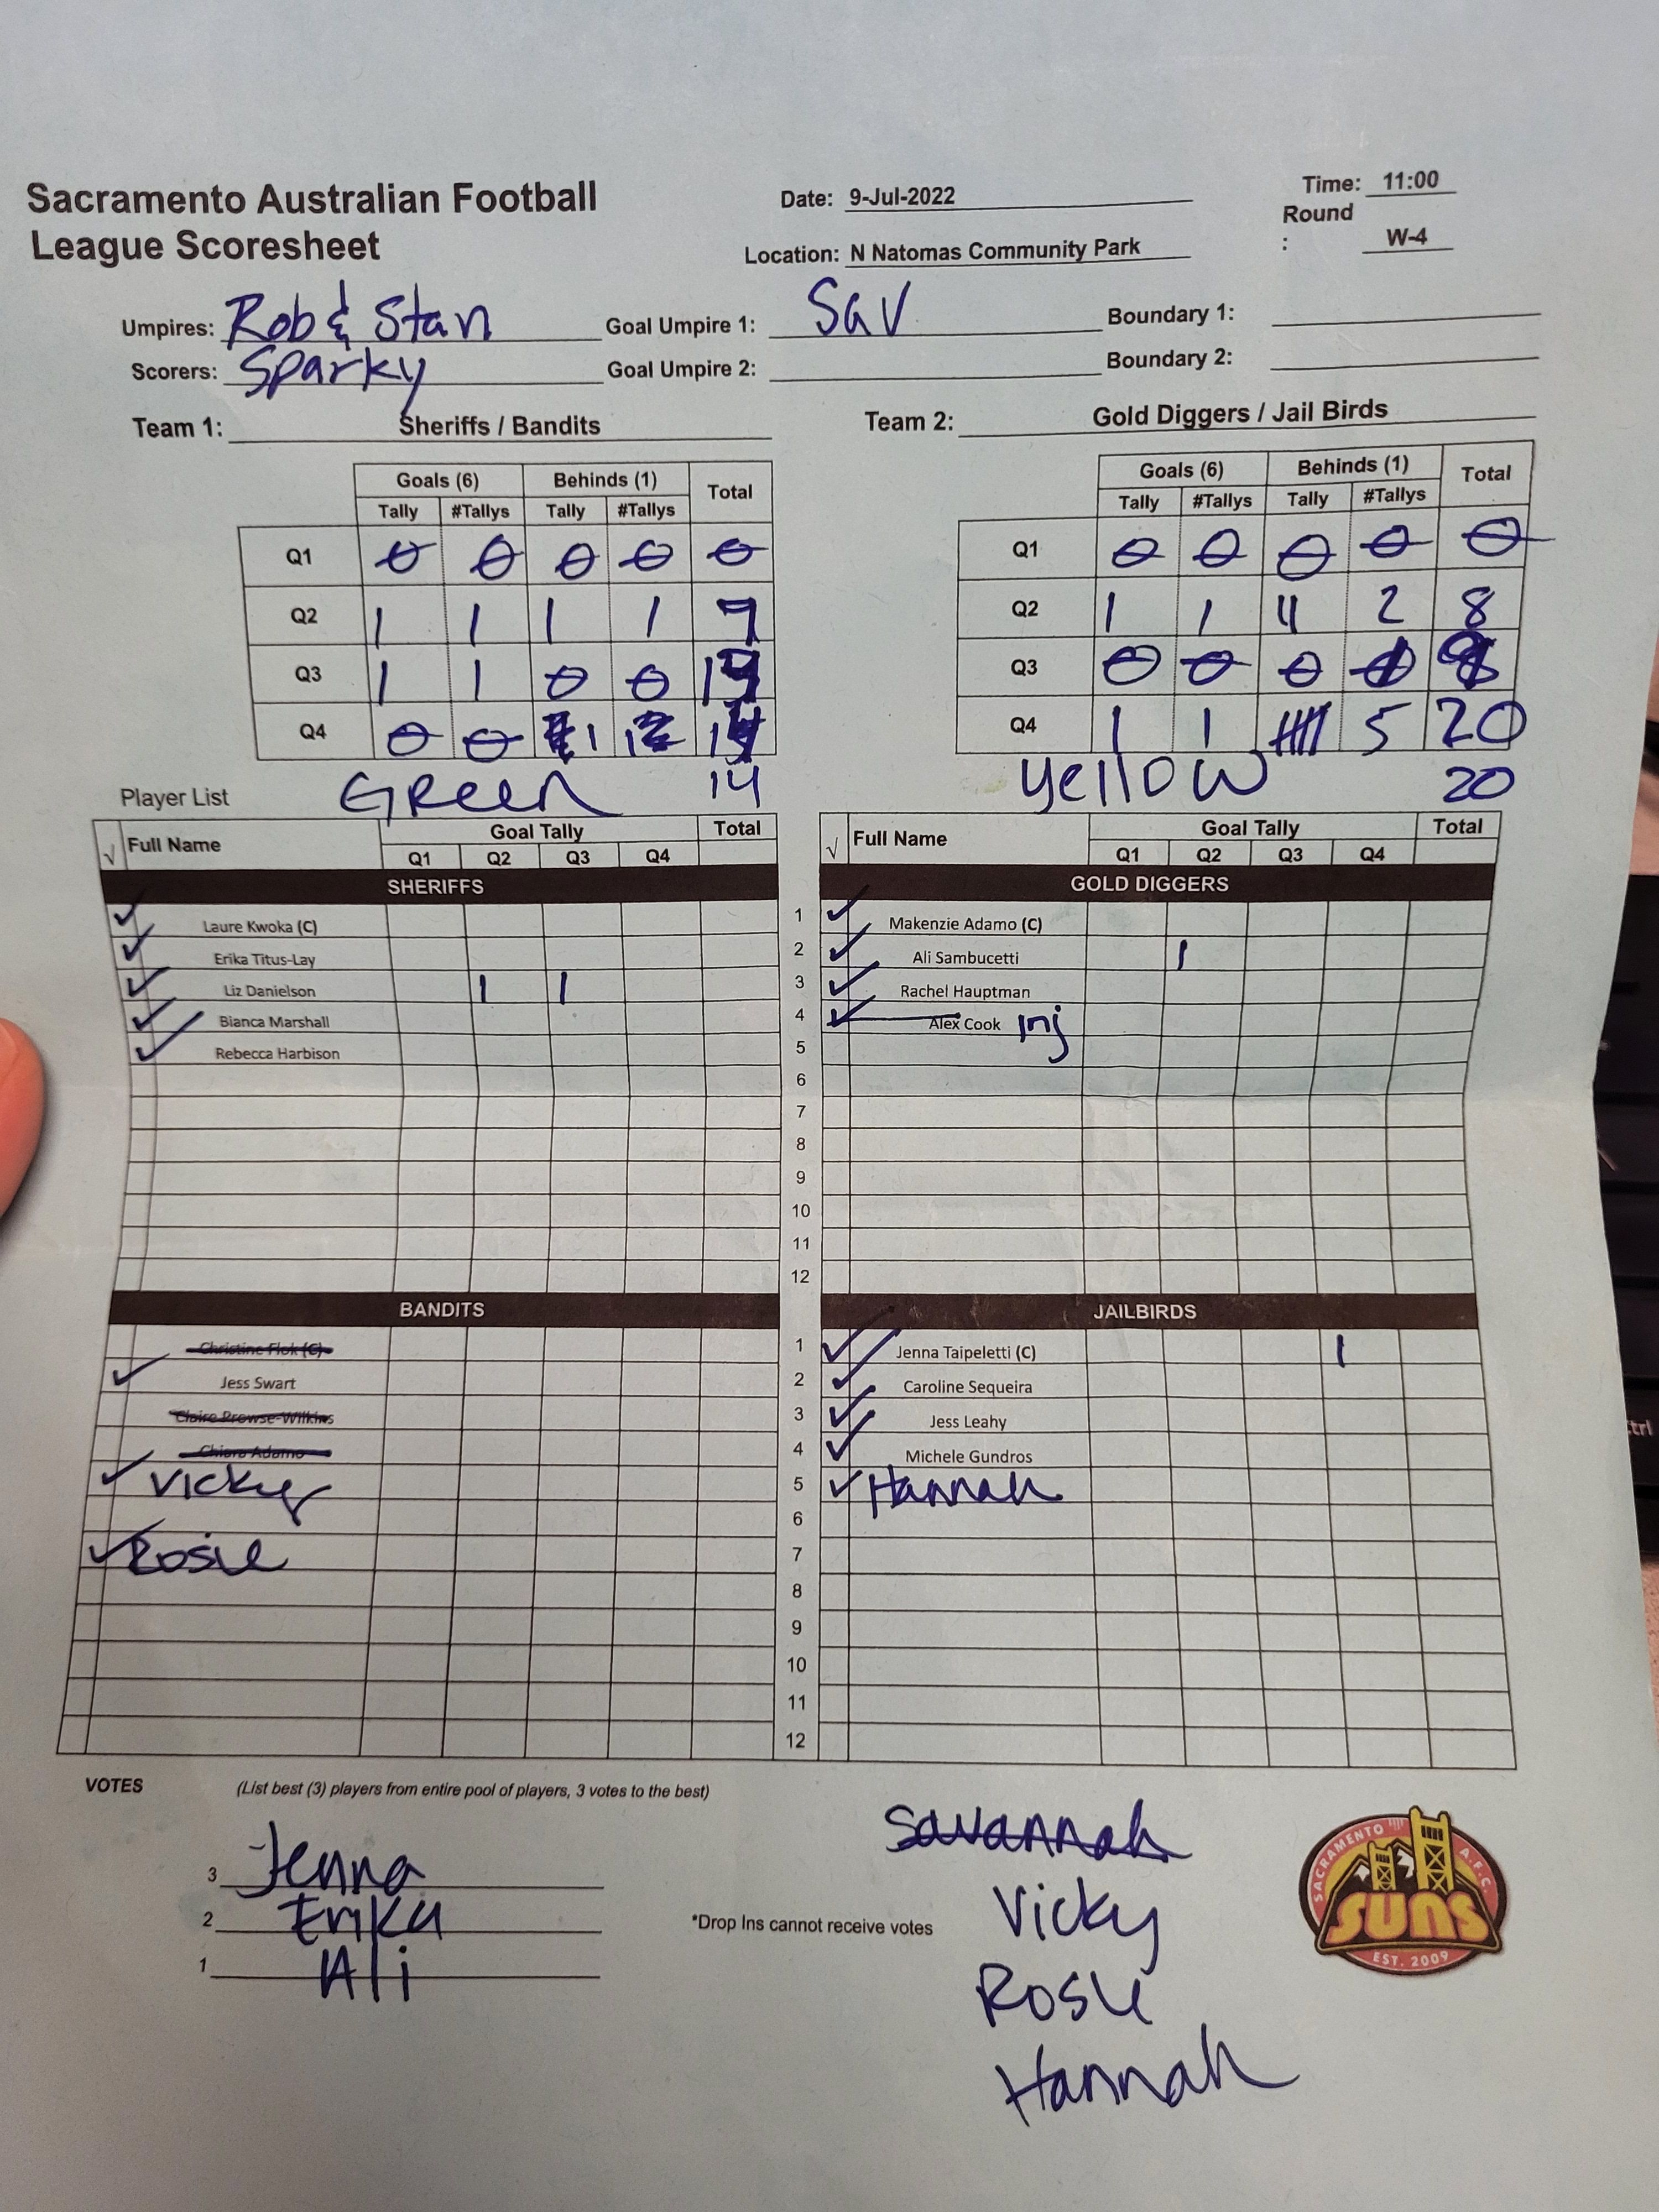 Sacramento Australian Football
League Scoresheet
Date: 9-Jul-2022
Time: 11:00
Location: N Natomas Community Park
Round
: W-4
Umpires: Rob & Stan
Goal Umpire 1: Sav
Boundary 1:
Scorers: Sparky
Goal Umpire 2:
Boundary 2:
Team 1: Sheriffs / Bandits
Team 2: Gold Diggers / Jail Birds
Goals (6) Behinds (1) Total
Tally #Tallys Tally #Tallys
Q1 0 0 0 0 0
Q2 1 1 1 1 7
Q3 1 1 0 0
Q4 0 0 1 1
Green 14
Goals (6) Behinds (1) Total
Tally #Tallys Tally #Tallys
Q1 0 0 0 0 0
Q2 1 1 11 2 8
Q3 0 0 0
Q4 1 1 5 20
Yellow 20
Player List
√ Full Name Goal Tally Total
Q1 Q2 Q3 Q4
SHERIFFS
✓ Laure Kwoka (C)
✓ Erika Titus-Lay
✓ Liz Danielson 1 1
✓ Bianca Marshall
✓ Rebecca Harbison
BANDITS
Christine Flok (C)
✓ Jess Swart
Claire Prowse-Wilkins
Chiara Adamo
✓ Vicky
✓ Rosie
1
2
3
4
5
6
7
8
9
10
11
12
1
2
3
4
5
6
7
8
9
10
11
12
√ Full Name Goal Tally Total
Q1 Q2 Q3 Q4
GOLD DIGGERS
✓ Makenzie Adamo (C)
✓ Ali Sambucetti 1
✓ Rachel Hauptman
✓ Alex Cook inj
JAILBIRDS
✓ Jenna Taipeletti (C) 1
✓ Caroline Sequeira
✓ Jess Leahy
✓ Michele Gundros
✓ Hannah
VOTES (List best (3) players from entire pool of players, 3 votes to the best)
3 Jenna
2 Erika
1 Ali
*Drop Ins cannot receive votes
Savannah
Vicky
Rosie
Hannah
SACRAMENTO A.F.C.
SUNS
EST. 2009
trl